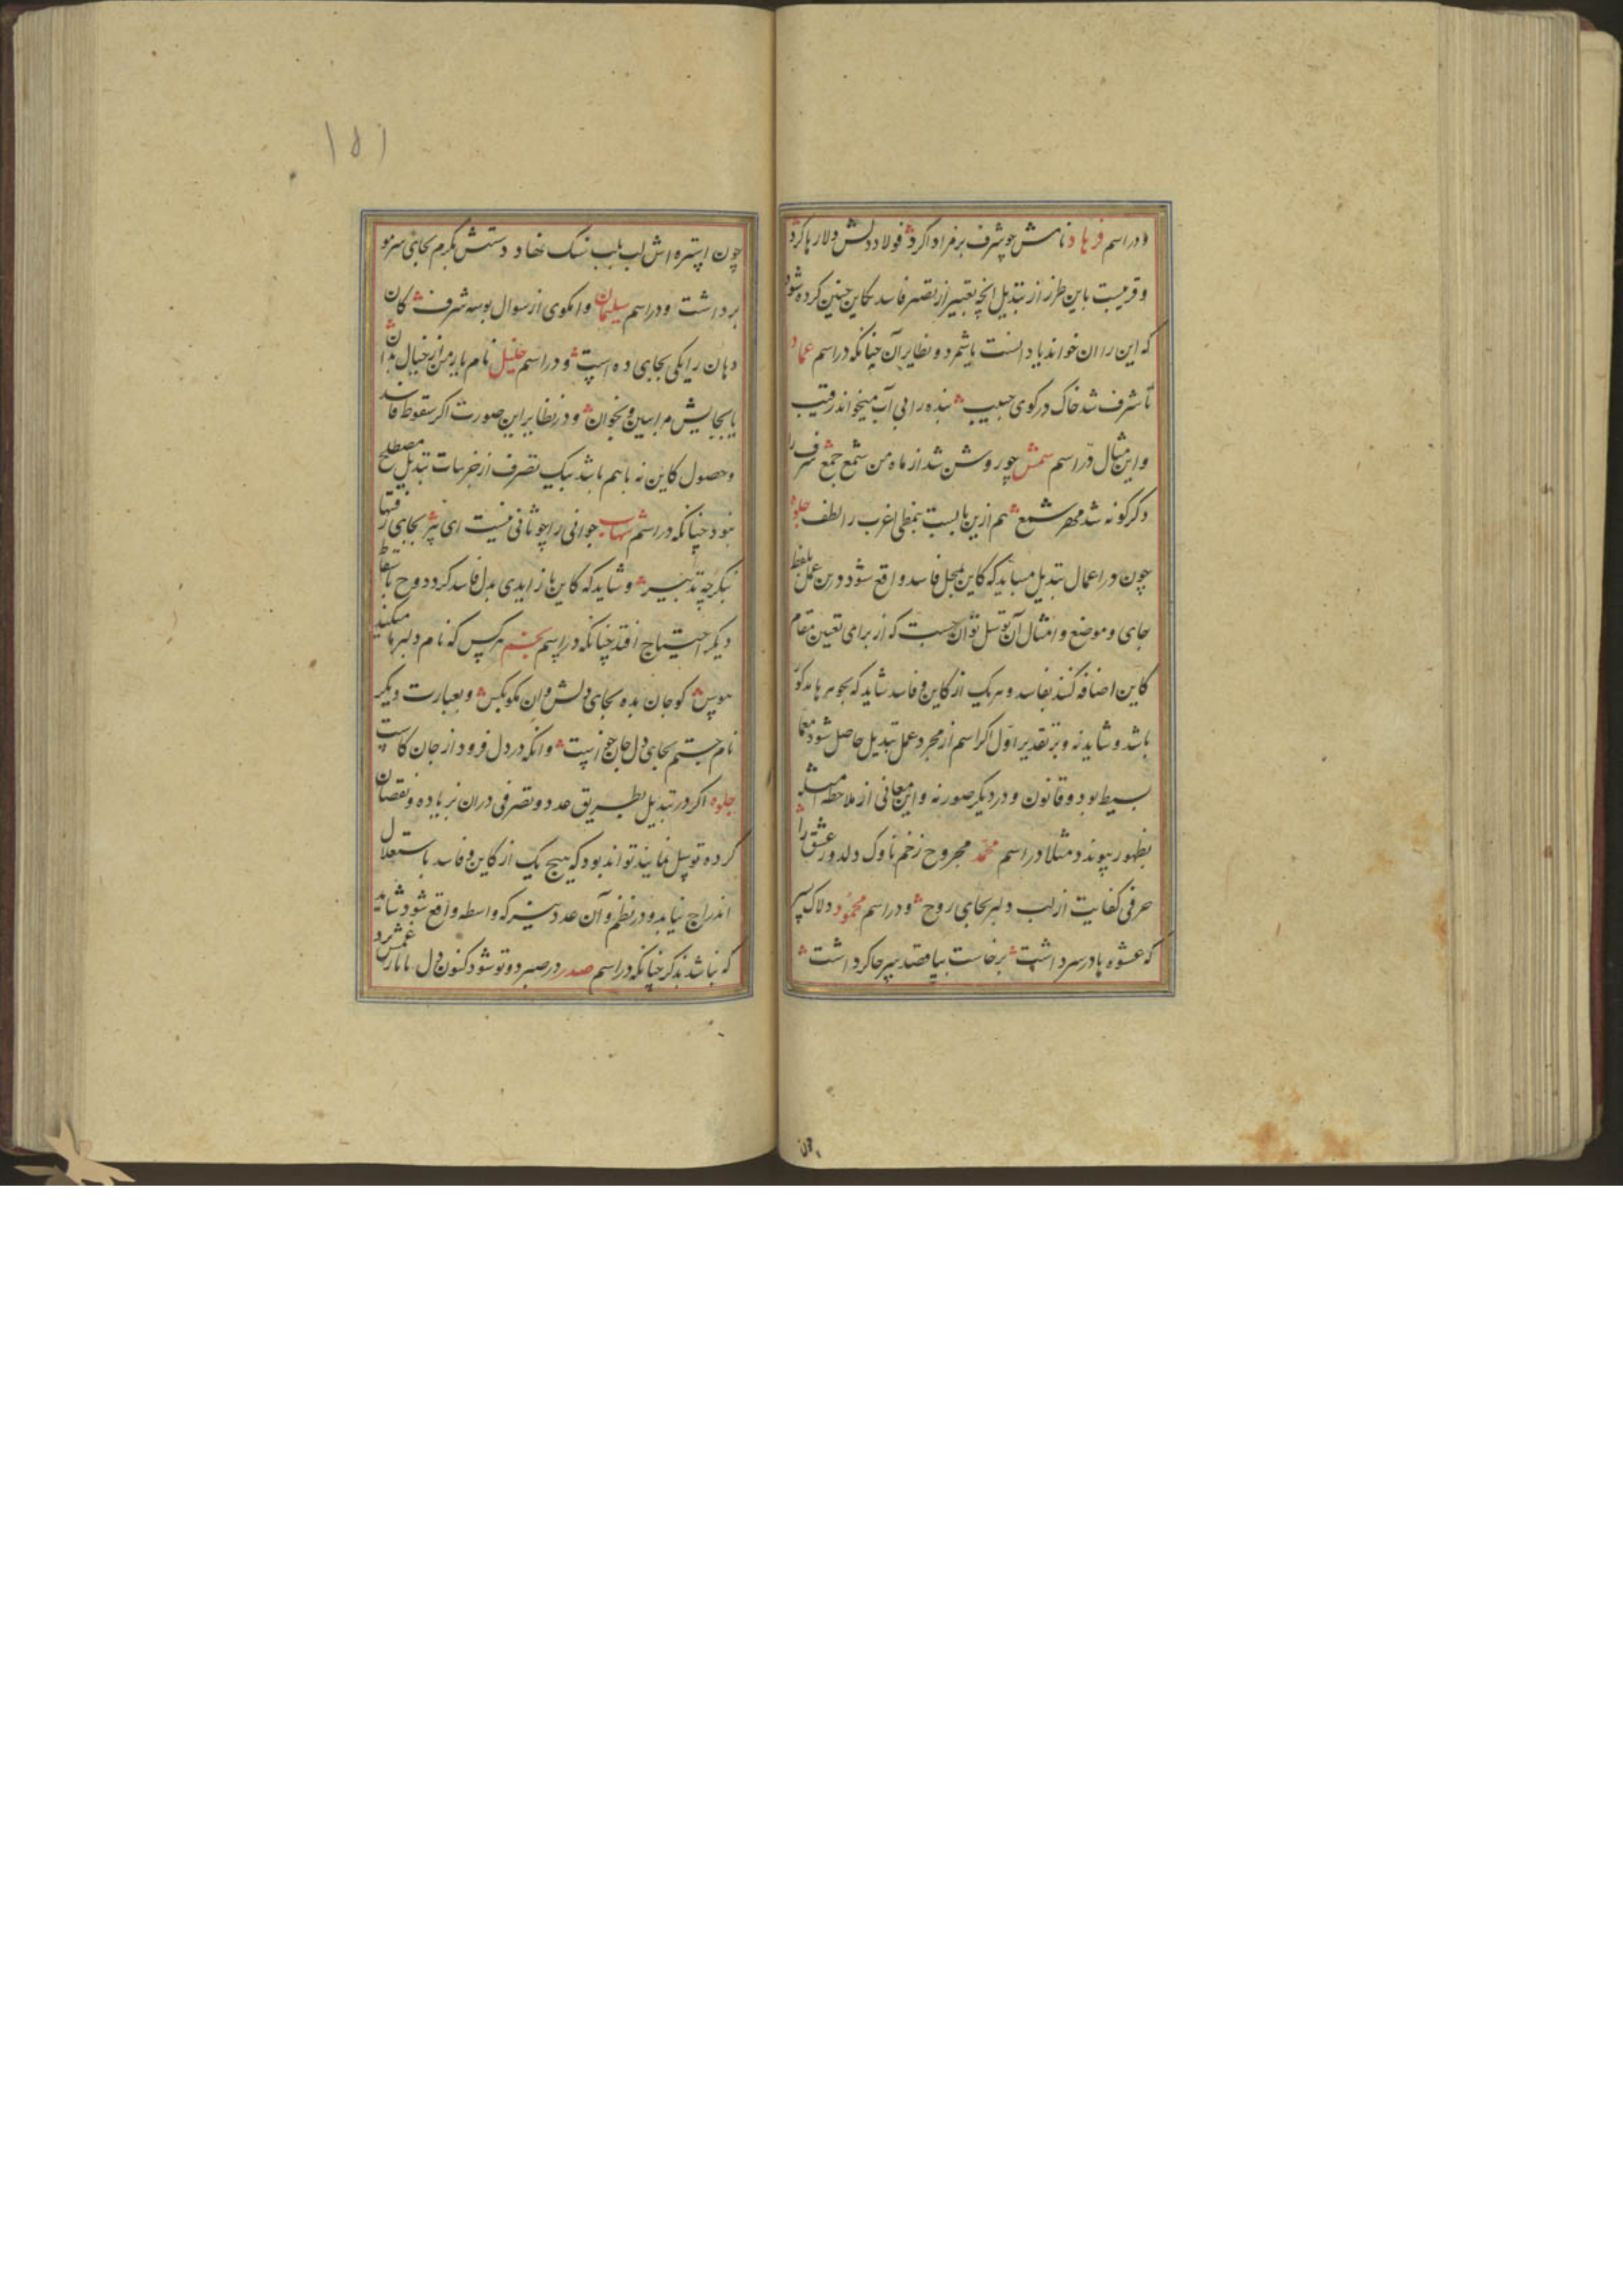 و در اسم فرهاد نامش چو شرف بر مراد اکرد فولاد دلش دلار ها کرد
و قریبست باین طرز از تبدیل انچه تعبیر از تصیر فاسد بکاین چنین کرده شود
که این را ان خوانند یا دانست یا شمرد و نظایر آن چنانکه در اسم عماد
تا شرف شد خاک در کوی حبیب بنده را بی آب میخواند رقیب
و این مثال در اسم شمس چو روشن شد از ماه من شمع جمع شرف را
دکرکونه شد مهر شمع هم ازین بابست بنمطی اغرب و الطف جلوه
چون در اعمال تبدیل میباید که کاین بمحل فاسد واقع شود درین عمل بلفظ
جای و موضع و امثال آن توسل توان جست که از برای تعیین مقام
کاین اضافه کنند بفاسد و هریک از کاین و فاسد شاید که بجوهرها مذکور
باشد و شاید نه و بر تقدیر اول اکر اسم از مجرد عمل تبدیل حاصل شود معما
بسیط بود و قانون و در دیکر صور نه و این معانی از ملاحظه امثله
بظهور پیوندد مثلا در اسم محمد مجروح زخم ناوک دلدوز عشق را
حرفی کفایت از لب دلبر بجای روح و در اسم محمود دلاک پسر
که عشوه با در سر داشت برخاست بپا قصد سر جا کرد داشت
چون
۱۵۱
چون استره اش لب بلب سنک نهاد دستش بکرم بجای سر مو
برداشت و در اسم سلیمان وامکوی از سوال بوسه شرف کان
دهان را یکی بجای ده است و در اسم خلیل نام یار من از خیال بدان
یا بجایش مرا ببین و بخوان و در نظایر این صورت اکر سقوط فاسد
و حصول کاین نه باهم باشد بیک تصرف از جزییات تبدیل مصطلح
نبود چنانکه در اسم شهاب جوانی را چو ثانی نیست ای پیر بجای رفتها
بنکر چه تدبیر و شاید که کاین ها زایدی بدل فاسد کردد و ح باسقاط
دیکر احتیاج افتد چنانکه در اسم نجم هر کس که نام دلبر ما میکند
هوس کو جان بده بجای دلش وان مکو بکس و بعبارت دیکر
نام جستم بجای دل جان خواست وانکه در دل فزود از جان کاست
جلوه اکر در تبدیل بطریق عدد و تصرفی در ان بزیاده و نقصان
کرده توسل نمایند تواند بود که هیچ یک از کاین و فاسد باستقلال
اندراج نیابد در نظم و آن عدد نیز که واسطه واقع شود شاید
که نباشد مذکور چنانکه در اسم صدر در صبر دو تو شود کنون دل ما